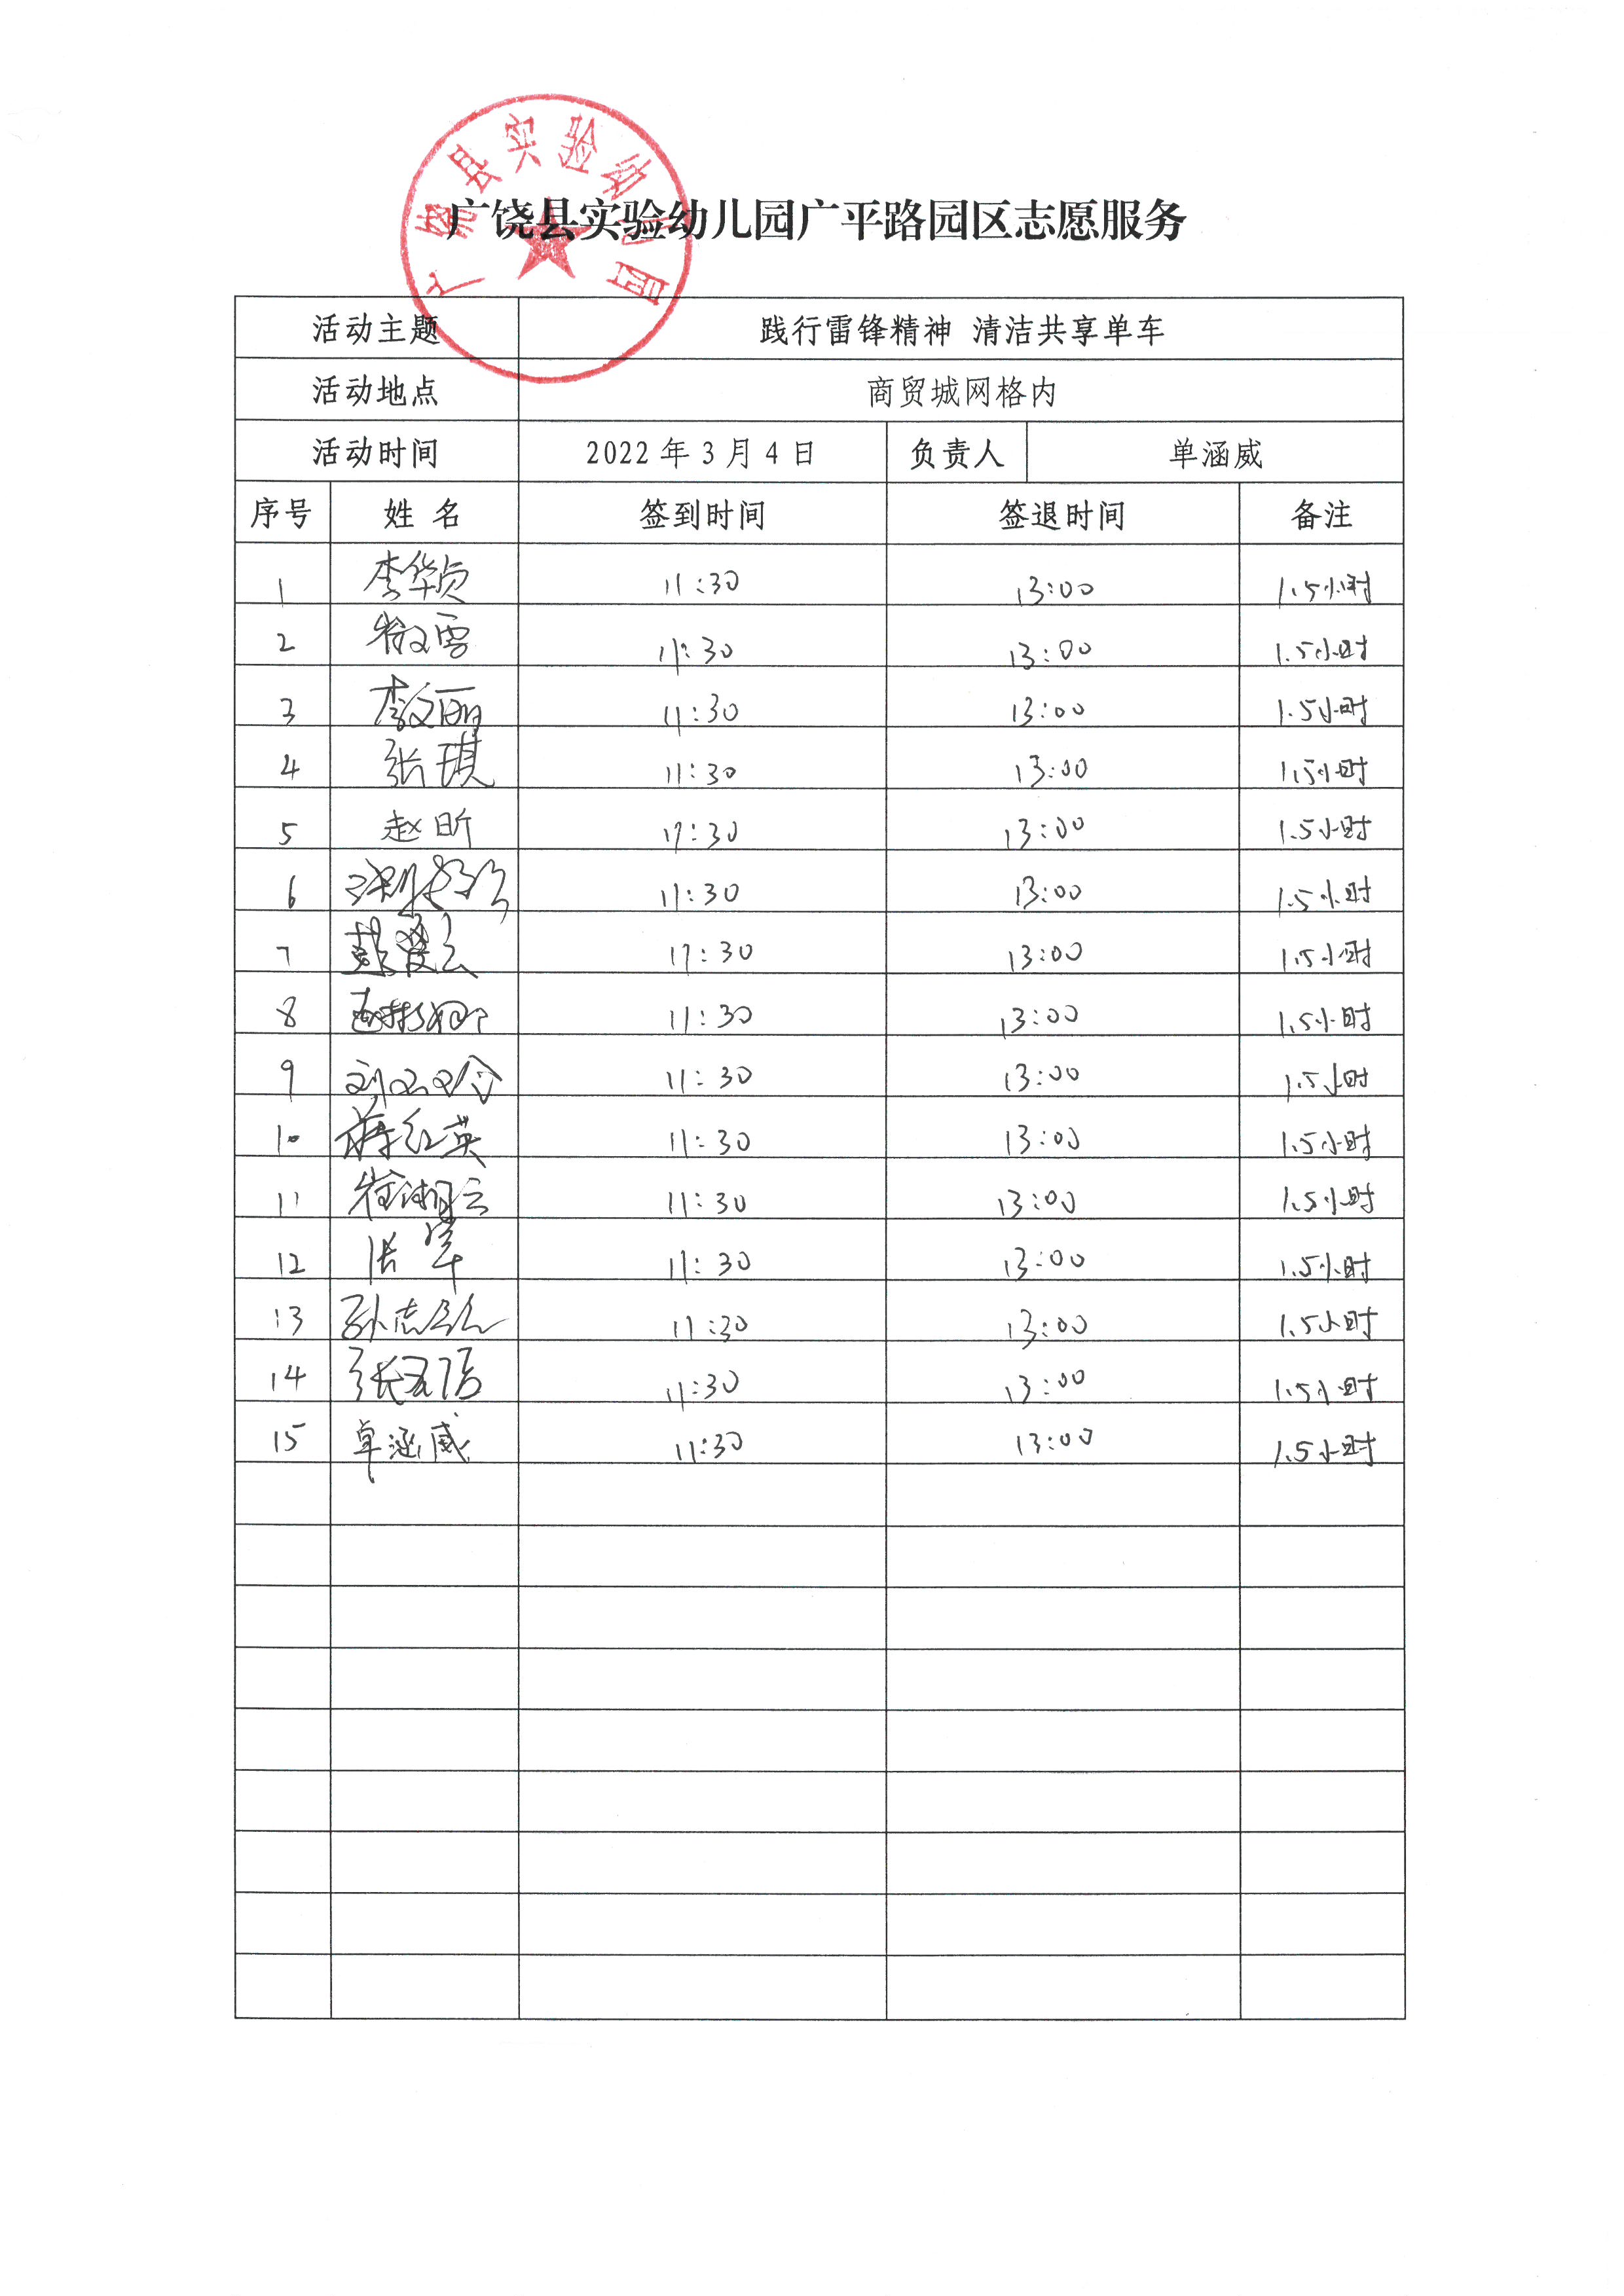 广饶县实验幼儿园
广饶县实验幼儿园广平路园区志愿服务
活动主题 践行雷锋精神 清洁共享单车
活动地点 商贸城网格内
活动时间 2022年3月4日 负责人 单涵威
序号 姓名 签到时间 签退时间 备注
1 李华贞 11:30 13:00 1.5小时
2 11:30 13:00 1.5小时
3 李文丽 11:30 13:00 1.5小时
4 张琪 11:30 13:00 1.5小时
5 赵昕 11:30 13:00 1.5小时
6 11:30 13:00 1.5小时
7 11:30 13:00 1.5小时
8 11:30 13:00 1.5小时
9 11:30 13:00 1.5小时
10 蒋红英 11:30 13:00 1.5小时
11 崔湘云 11:30 13:00 1.5小时
12 11:30 13:00 1.5小时
13 11:30 13:00 1.5小时
14 11:30 13:00 1.5小时
15 单涵威 11:30 13:00 1.5小时